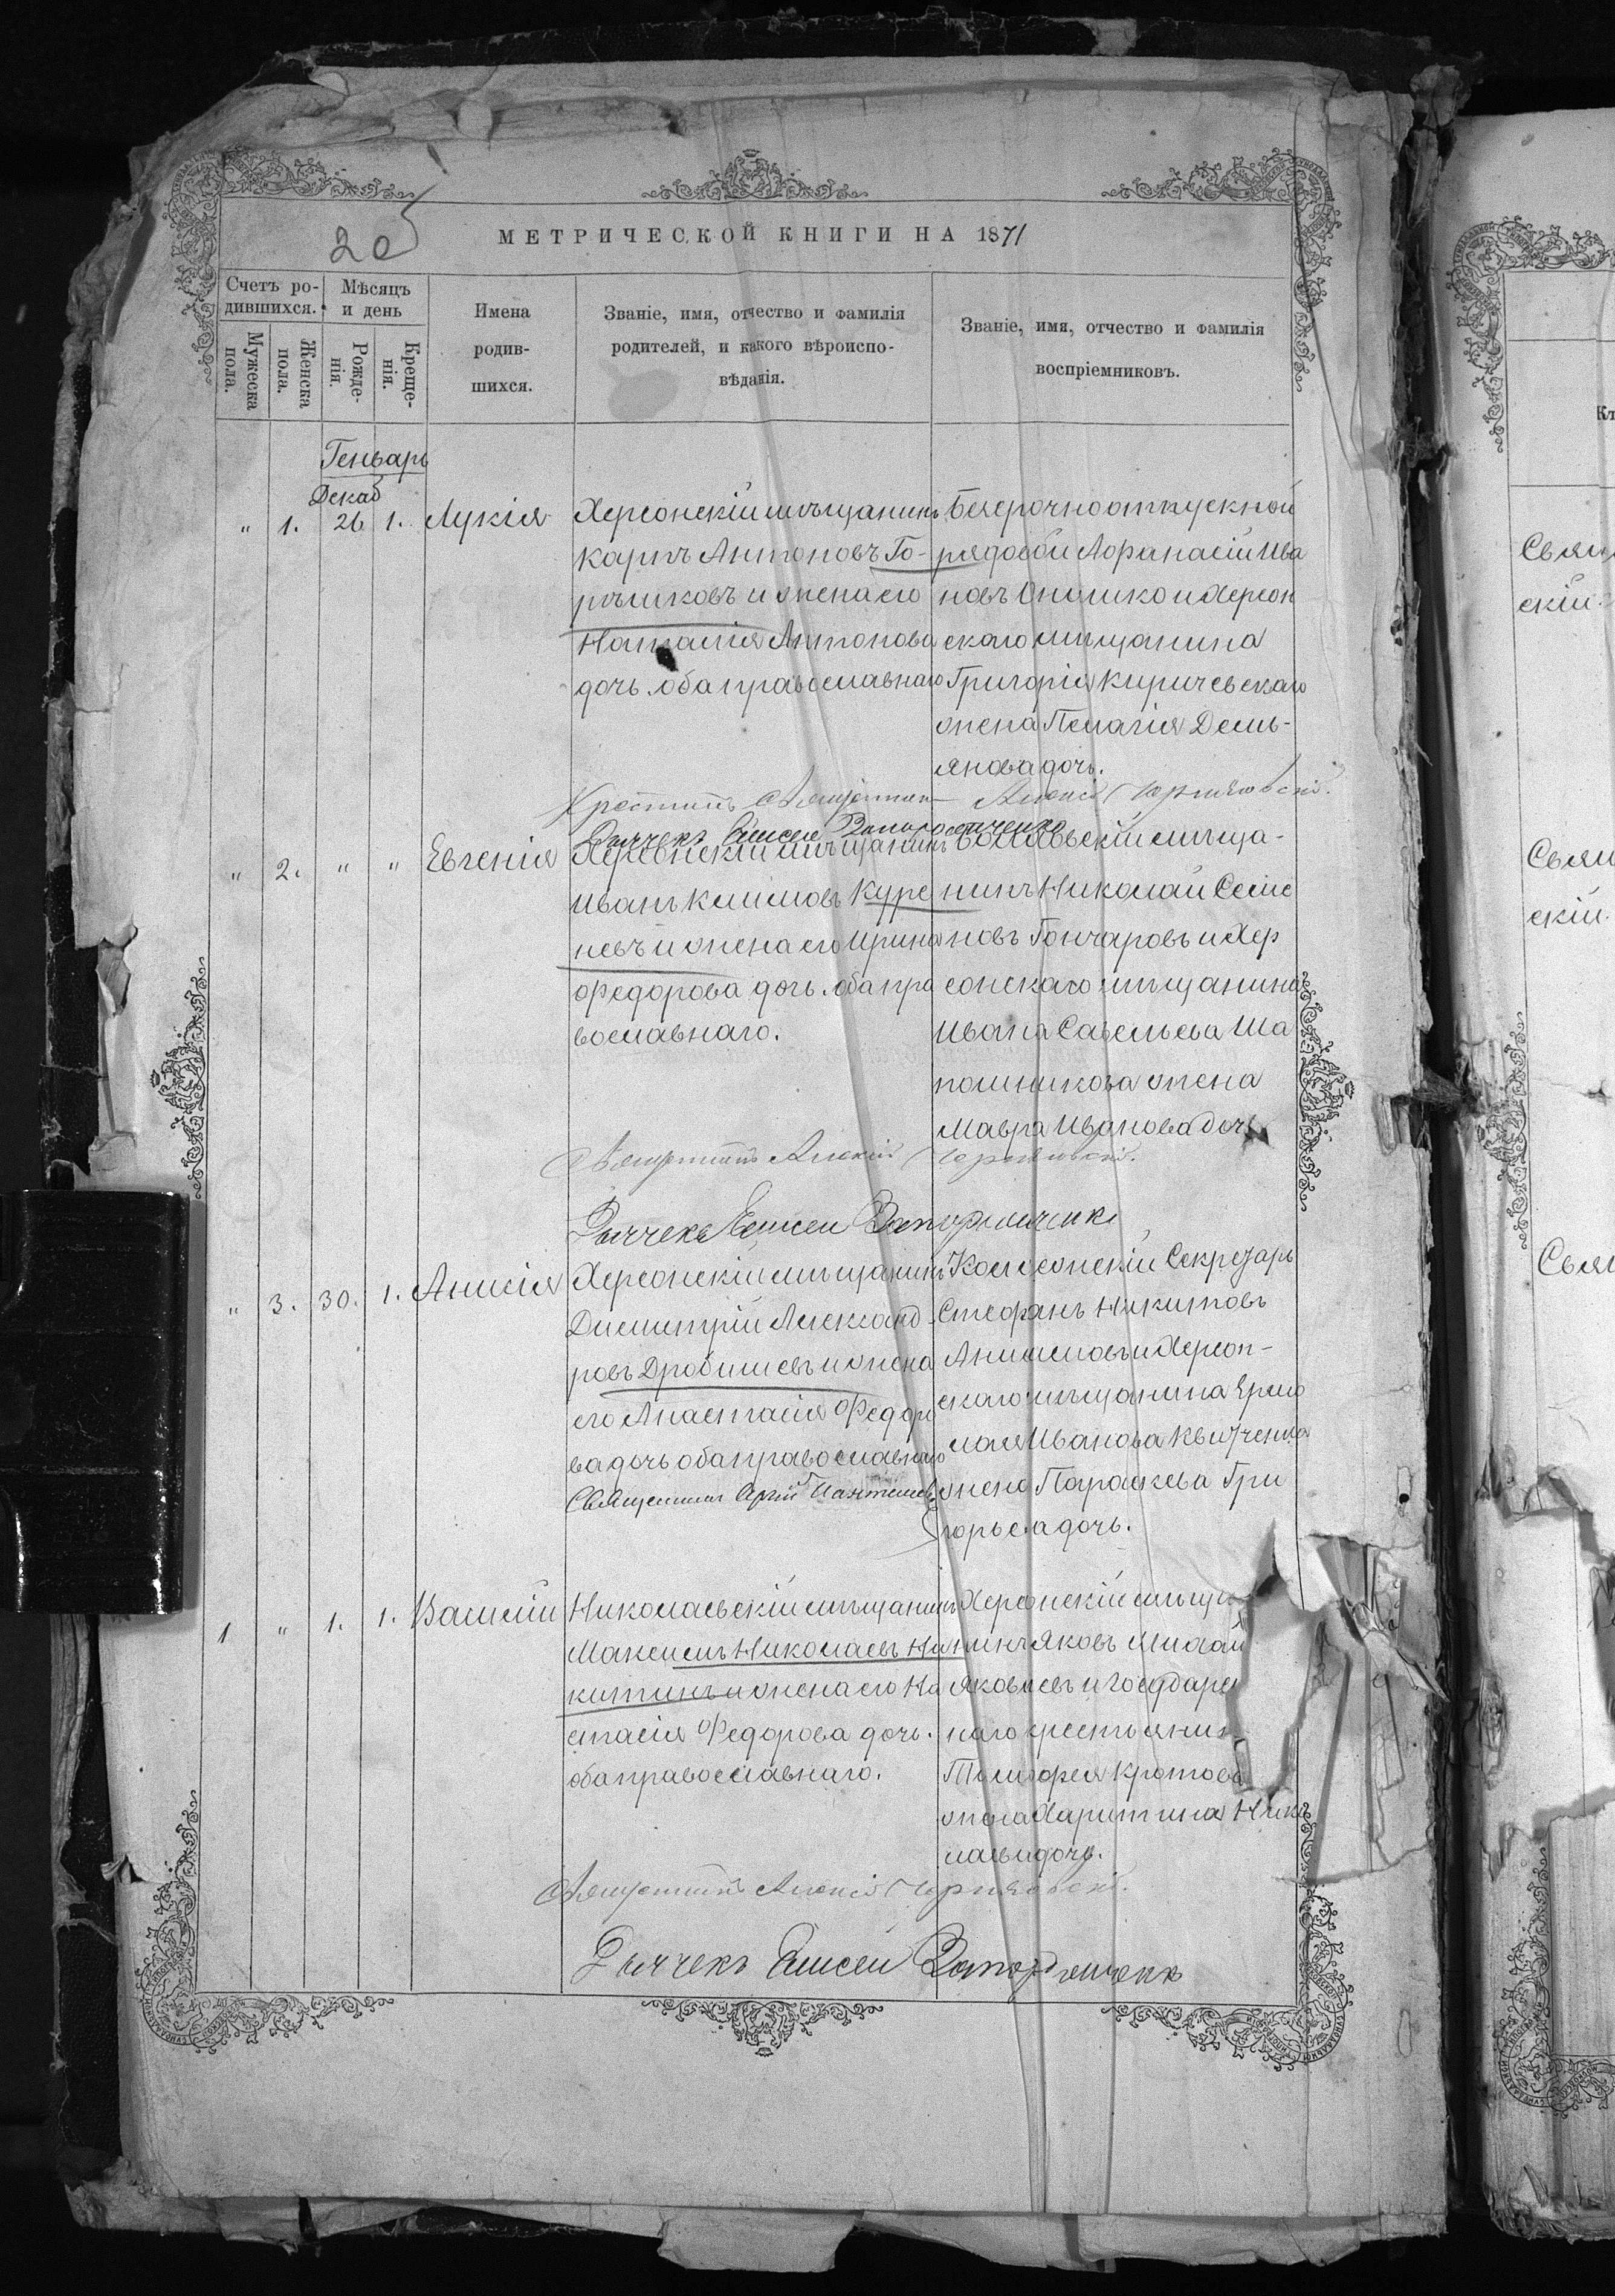 205
МЕТРИЧЕСКОЙ КНИГИ НА 1871
Счетъ ро-
дившихся.
Мужеска
пола.
Женска
пола.
Мѣсяцъ
и день
Рожде-
нія.
Креще-
нія.
Имена
родив-
шихся.
Званіе, имя, отчество и фамилія
родителей, и какого вѣроиспо-
вѣданія.
Званіе, имя, отчество и фамилія
воспріемниковъ.
Генварь
Декаб
" 1. 26 1. Лукія
Херсонскій мѣщанинъ
Карпъ Антоновъ Го-
рѣшковъ и жена его
Наталія Антонова
дочь. оба православнаго
Безсрочноотпускной
рядовой Афанасій Ива
новъ Оношко и Херсон
скаго мѣщанина
Григорія Киричевскаго
жена Пелагія Демь-
янова дочь.
Крестилъ Священникъ Алексій
Дьячекъ Елисей
" 2. " " Евгенія
Херсонскій мѣщанинъ
Иванъ Климовъ Куре
невъ и жена его Ирина
Федорова дочь. оба пра
вославнаго.
мѣща-
нинъ Николай Семе
новъ Гончаровъ и Хер
сонскаго мѣщанина
Ивана Савельева Ша
пошникова жена
Мавра Иванова дочь
Священникъ Алексій
Дьячекъ Елисей
" 3. 30. 1. Анисія
Херсонскій мѣщанинъ
Димитрій Александ
ровъ Дробишевъ и жена
его Анастасія Федоро
ва дочь оба православнаго
Священникъ
Секретарь
Стефанъ Никитовъ
Анисимовъ и Херсон-
скаго мѣщанина Ермо
лая Иванова
жена Параскева Гри
горьева дочь.
1 " 1. 1. Василій
Николаевскій мѣщанинъ
Максимъ Николаевъ Ни
китинъ и жена его На
стасія Федорова дочь.
оба православнаго.
Херсонскій мѣща
нинъ Яковъ Михай
Яковлевъ и Государст
наго крестьянин
Тимофея Кротова
жена Харитина Нико
лаева дочь.
Священникъ Алексій
Дьячекъ Елисей
Кл
Свящ
скій.
Свящ
скій.
Свящ